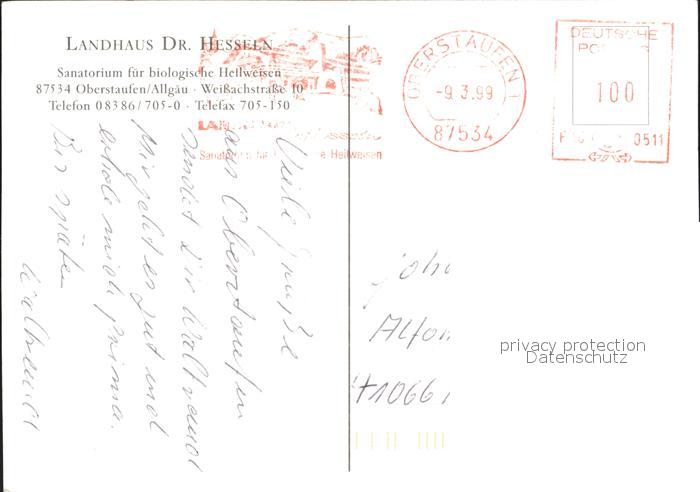 LANDHAUS DR. HESSELN
Sanatorium für biologische Heilweisen
87534 Oberstaufen/Allgäu · Weißachstraße 10
Telefon 08386/705-0 · Telefax 705-150
Sanatorium für Heilweisen
OBERSTAUFEN 1
-9.3.99
87534
DEUTSCHE
100
0511
Viele Grüße
aus Oberstaufen
sendet Dir Waltraud
Mir geht es gut und
erhole mich prima.
Bis später
Waltraud
71066
privacy protection
Datenschutz